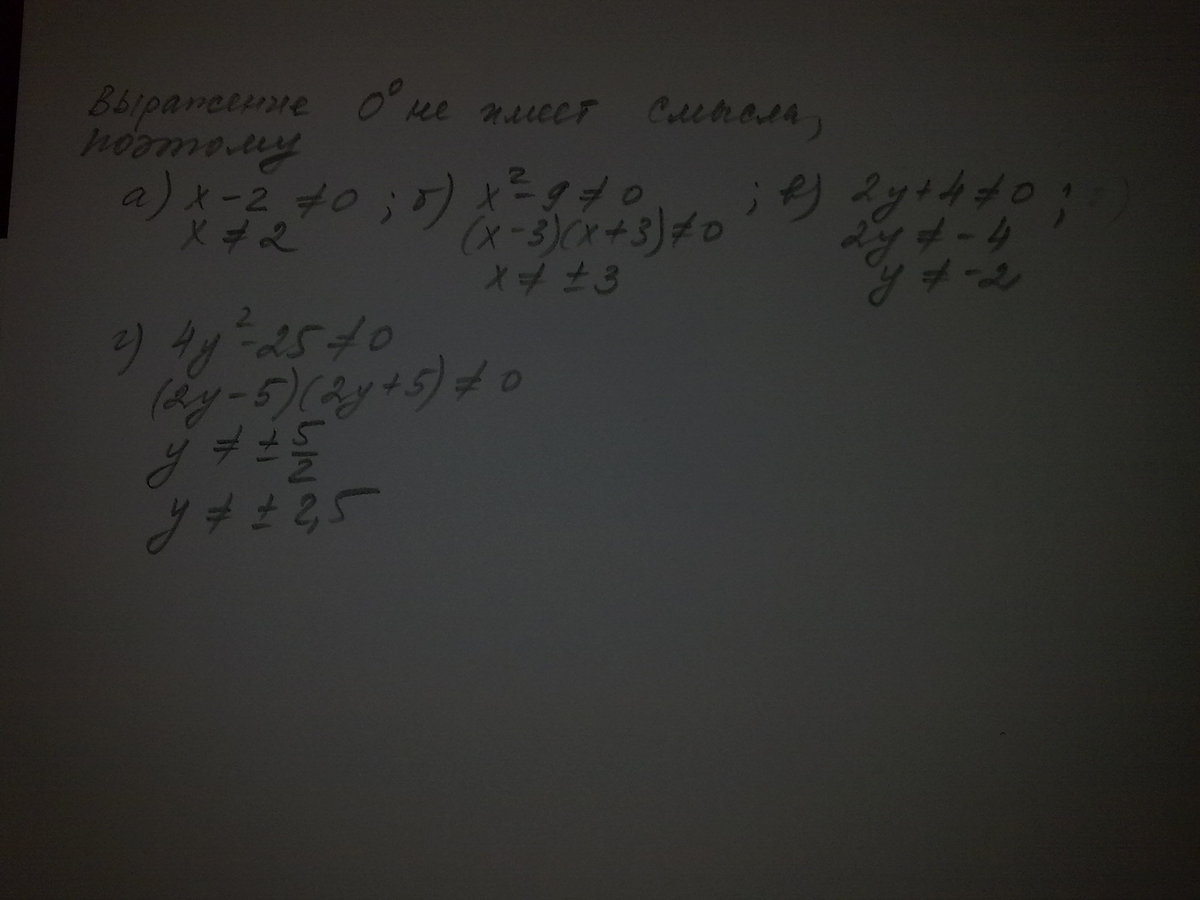 Выражение 0⁰ не имеет смысла,
поэтому
а) x - 2 ≠ 0 ; б) x² - 9 ≠ 0 ; в) 2y + 4 ≠ 0 ;
x ≠ 2 (x - 3)(x + 3) ≠ 0 2y ≠ - 4
x ≠ ± 3 y ≠ -2
г) 4y² - 25 ≠ 0
(2y - 5)(2y + 5) ≠ 0
y ≠ ± 5/2
y ≠ ± 2,5